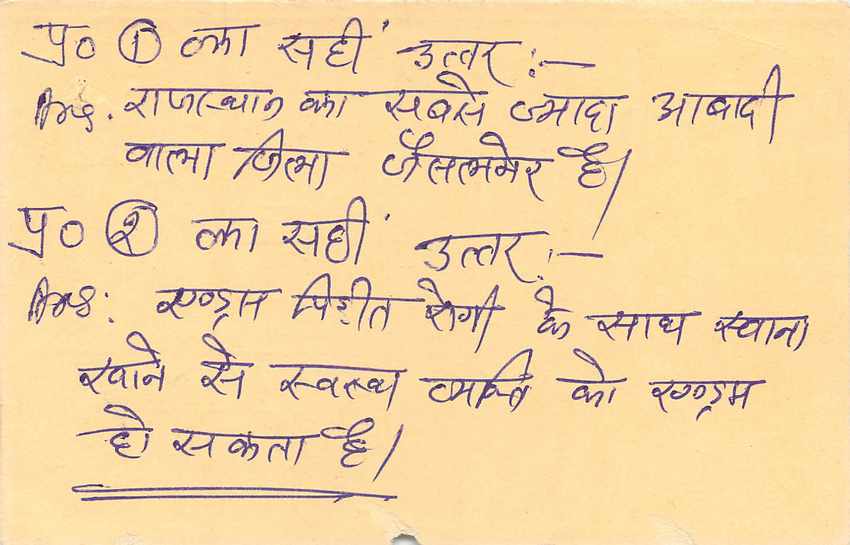 प्र० ① का सहीं उत्तर :—
Ans. राजस्थान का सबसे ज्यादा आबादी
वाला जिला जैसलमेर है।
प्र० ② का सहीं उत्तर :—
Ans: एण्ड्स पिड़ीत रोगी के साथ खाना
खाने से स्वस्थ व्यक्ति को एण्ड्स
हो सकता है।